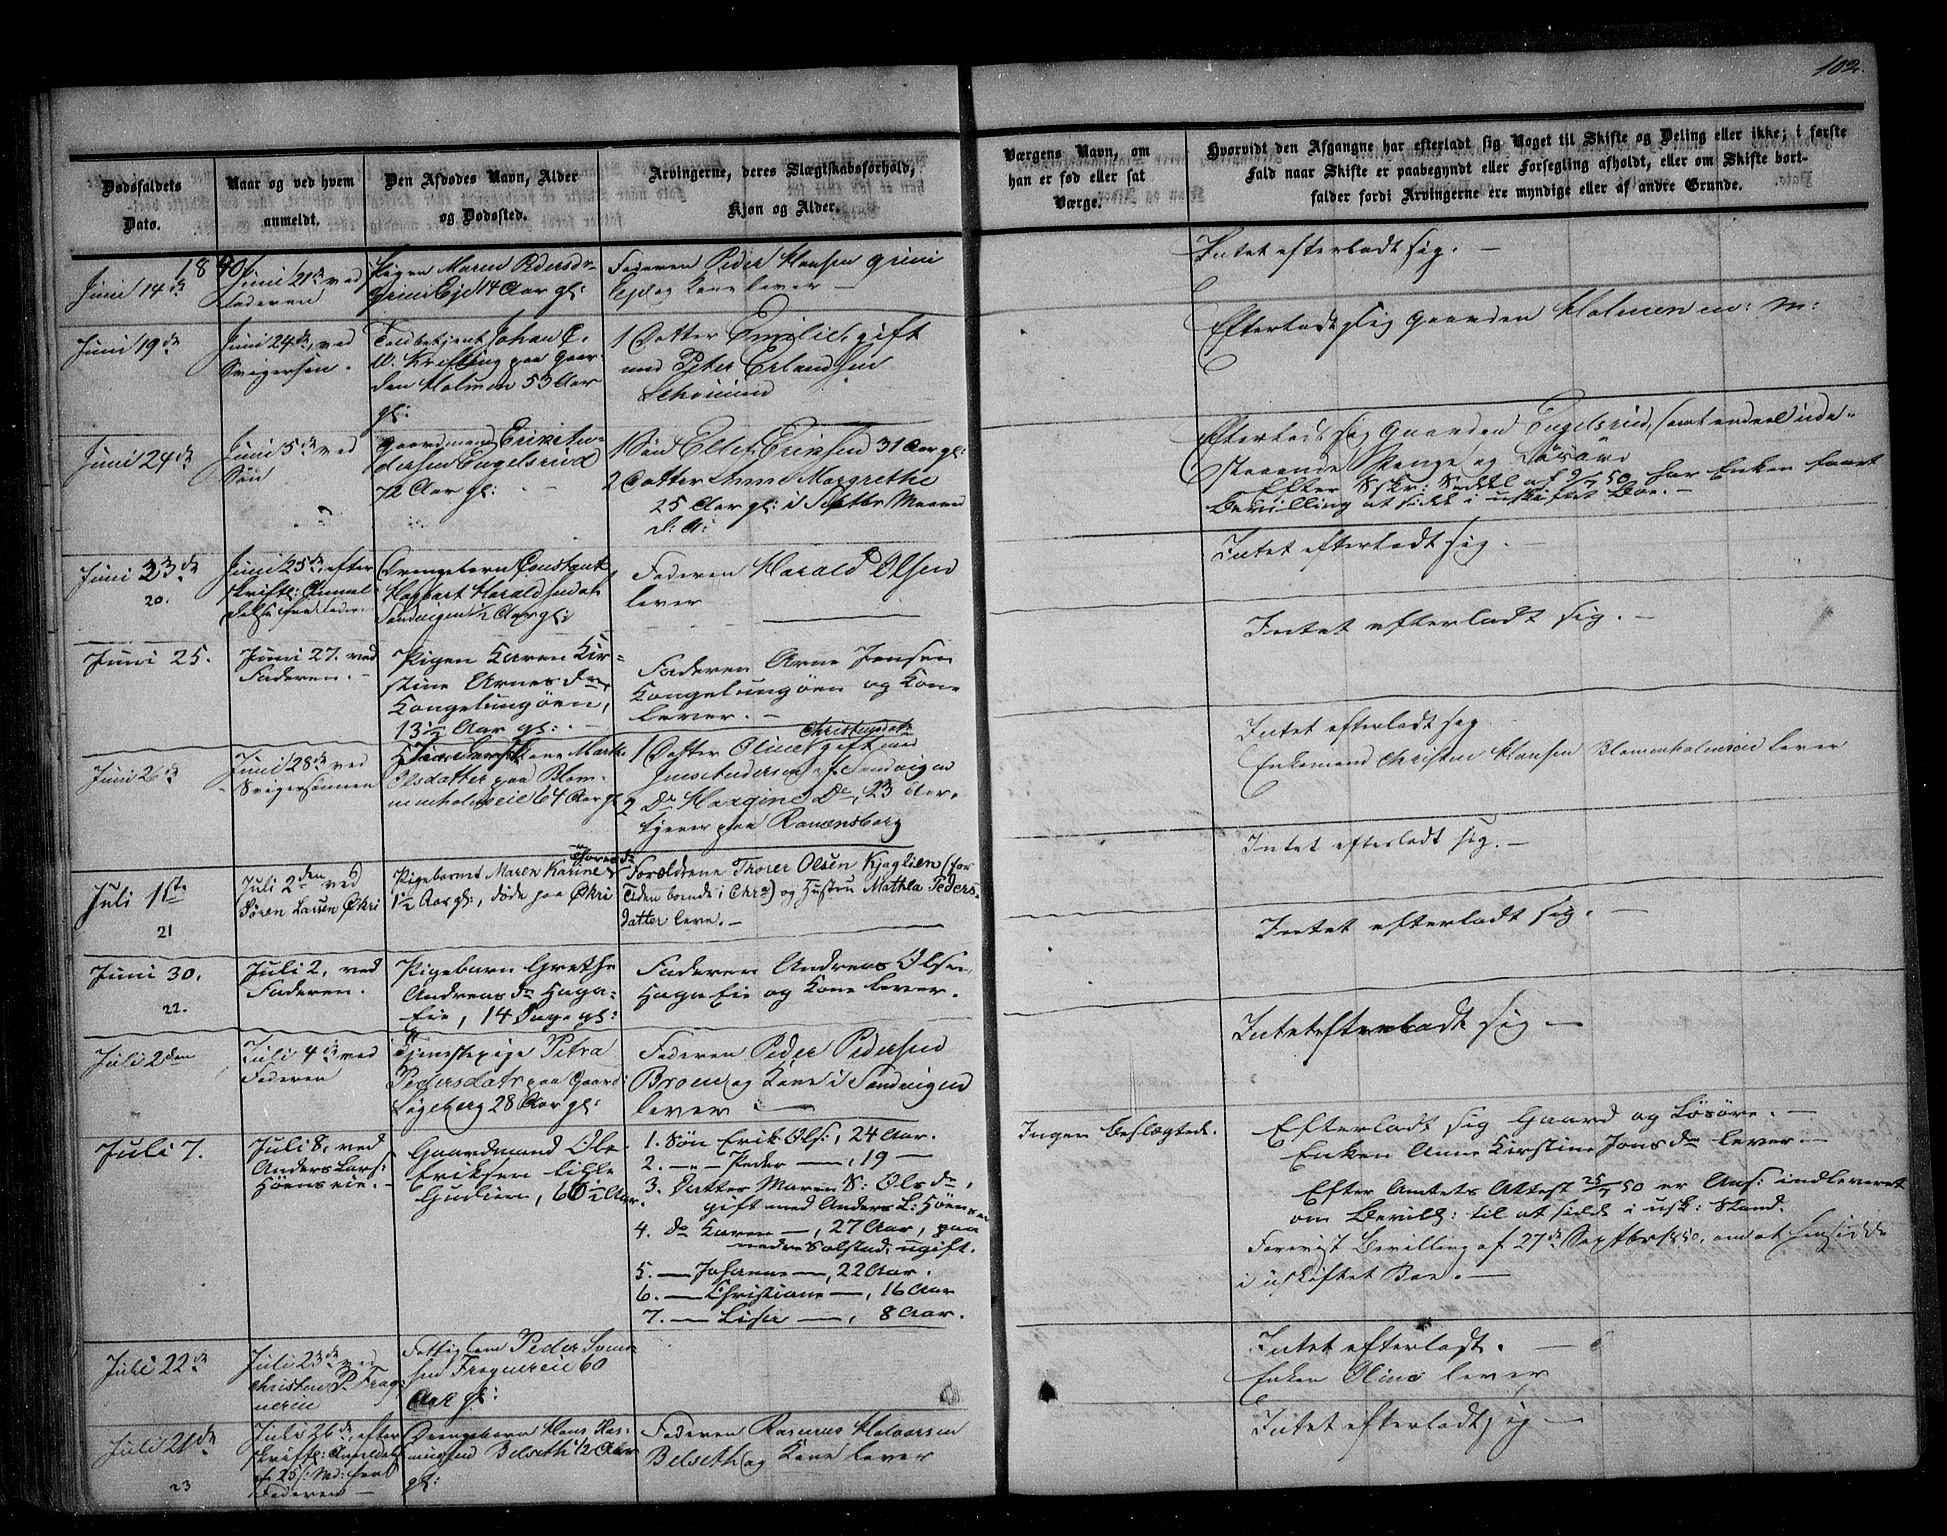 102.
Dødsfaldets
Dato.
Naar og ved hvem
anmeldt.
Den Afdødes Navn, Alder
og Dødssted.
Arvingerne, deres Slægtskabsforhold,
Kjøn og Alder.
Værgens Navn, om
han er fød eller sat
Værge.
Hvorvidt den Afgangne har efterladt sig Noget til Skifte og Deling eller ikke; i første
Fald naar Skifte er paabegyndt eller Forsegling afholdt, eller om Skifte bort-
falder fordi Arvingerne ere myndige eller af andre Grunde.
Juni 14de
Juni 21de ved
Faderen
Pigen Maren Pedersdr
Grini Eje 14 Aar gl:
Faderen Peder Hansen Grini
Eje og Kone lever —
Intet efterladt sig. —
Juni 19de
Juni 24de, ved
Svigersøn.
Toldbetjent Johan C.
W. Krefting paa Gaar-
den Holmen 53 Aar
gl:
1 Datter Emilie, gift
med Peter Erlandsen
Efterladt sig Gaarden Holmen m: m:
Juni 24de
Juni 5de ved
Søn
Gaardmand Erik An-
dersen Engelsrud
72 Aar gl:
1 Søn Ellef Eriksen 31 Aar gl:
2 Datter Anne Margrethe
25 Aar gl: i Septbr Maaned
d: A:
Efterladt sig Gaarden Engelsrud, samt endeel ude-
staaende Penge og Løsøre
Efter Skr: Seddel af 9/7 50 har Enken faaet
Bevilling at sidde i uskiftet Boe. —
Juni 23de
20.
Juni 25de efter
skriftl: Anmel-
delse fra Fader.
Drengebarn Constant
Hagbart Haraldsen af
Sandvigen 1/2 Aar gl:
Faderen Harald Olsen
lever
Intet efterladt sig.
Juni 25.
Juni 27. ved
Faderen. —
Pigen Karen Kir-
stine Arnesdr,
Kongelungøen,
13 1/2 Aar gl: —
Faderen Arne Jensen
Kongelungøen og Kone
lever. —
Intet efterladt sig. —
Juni 26de
Juni 28de ved
Svigersønnen
Kone Marthe
Olsdatter paa Blom-
menholmseie 64 Aar gl
1 Datter Oline Christensdatr gift med
Jens Andersen i Sandvigen
2 Do Margine Do, 23 Aar,
tjener paa Ravensborg
Intet efterladt sig.
Enkemand Christen Hansen Blommenholmseie lever
Juli 1ste
21
Juli 2den ved
Søren Larsen Økri
Pigebarnet Maren Karine Thoresdr
1 1/2 Aar gl:, døde paa Økri
Forældrene Thorer Olsen Kjaglien (for
Tiden boende i Chra) og Hustru Mathea Peders-
datter leve. —
Intet efterladt sig. —
Juni 30.
22.
Juli 2. ved
Faderen.
Pigebarn Grethe
Andreasdr Haga-
Eie, 14 Dage gl:
Faderen Andreas Olsen,
Haga Eie og Kone lever.
Intet efterladt sig. —
Juli 2den
Juli 4de ved
Faderen
Tjenestepige Petra
Pedersdatr paa Gaard:
Løgeberg 28 Aar gl:
Faderen Peder Pedersen
Broen og Kone i Sandvigen
lever —
Intet efterladt sig —
Juli 7.
Juli 8, ved
Anders Lars:
Høenseie. —
Gaardmand Ole
Eriksen lille
Gudim, 60 1/2 Aar.
1. Søn Erik Ols:, 24 Aar.
2. —"— Peder —, 19 —
3. Datter Maren S: Olsdr,
gift med Anders L: Høenseie
4. do Karen —, 27 Aar, paa
nedre Solstad, ugift.
5. — Johanne —, 22 Aar.
6. — Christiane —, 16 Aar
7. — Lise —, 8 Aar.
Ingen Beslægtede.
Efterladt sig Gaard og Løsøre. —
Enken Anne Kirstine Jonsdr lever. —
Efter Amtets Attest 25/7 50 er Ans: indleveret
om Bevill: til at sidde i usk: Stand.
Forevist Bevilling af 27de Septbr 1850, om at hensidde
i uskiftet Boe. —
Juli 22de
Juli 23de ved
Christen P. Frog-
nerie
Fattiglem Peder Svend-
sen Frognereie 60
Aar gl:
Intet efterladt. —
Enken Oline lever
Juli 21de
23
Juli 26de, efter
skriftl: Anmeldelse
af 25 s: Md: fra
Faderen —
Drengebarn Hans Ras-
mussen Belseth 1/2 Aar
gl:
Faderen Rasmus Halvorsen
Belseth og Kone lever
Intet efterladt sig —